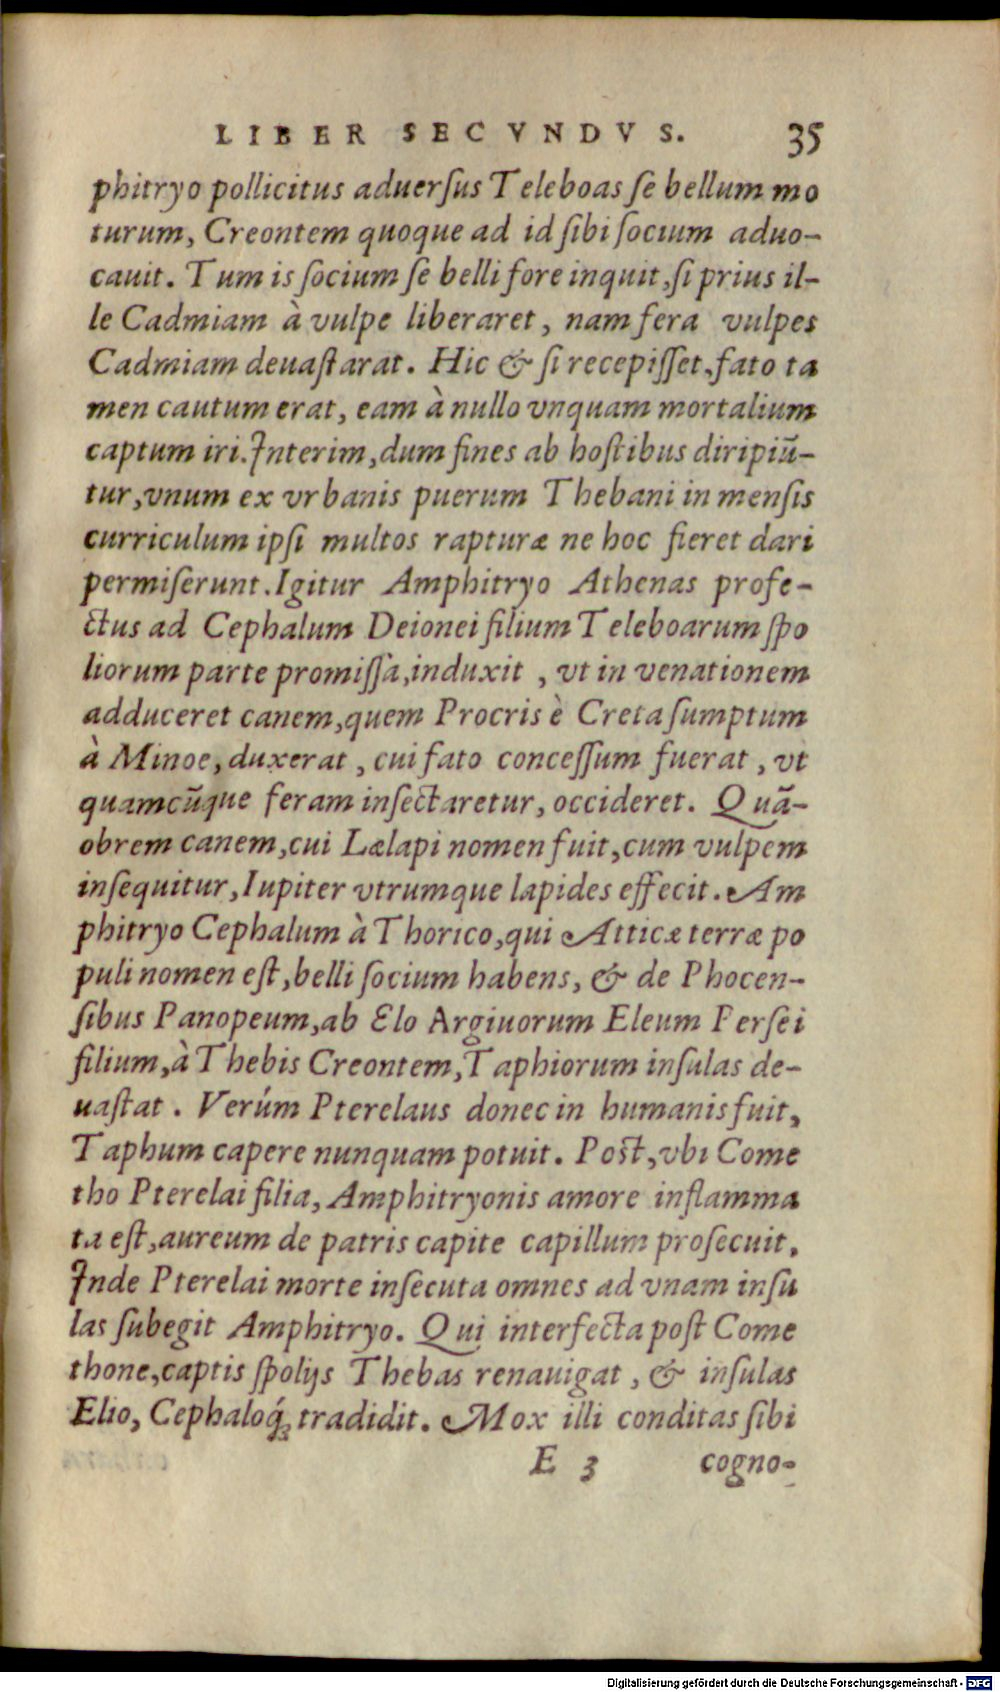 LIBER SECVNDVS. 35
phitryo pollicitus aduerſus Teleboas ſe bellum mo
turum, Creontem quoque ad id ſibi ſocium aduo-
cauit. Tum is ſocium ſe belli fore inquit, ſi prius il-
le Cadmiam à vulpe liberaret, nam fera vulpes
Cadmiam deuaſtarat. Hic & ſi recepiſſet, fato ta
men cautum erat, eam à nullo vnquam mortalium
captum iri. Interim, dum fines ab hoſtibus diripiū-
tur, vnum ex vrbanis puerum Thebani in menſis
curriculum ipſi multos rapturæ ne hoc fieret dari
permiſerunt. Igitur Amphitryo Athenas profe-
ctus ad Cephalum Deionei filium Teleboarum ſpo
liorum parte promiſſa, induxit, vt in venationem
adduceret canem, quem Procris è Creta ſumptum
à Minoe, duxerat, cui fato conceſſum fuerat, vt
quamcūque feram inſectaretur, occideret. Quā-
obrem canem, cui Lælapi nomen fuit, cum vulpem
inſequitur, Iupiter vtrumque lapides effecit. Am
phitryo Cephalum à Thorico, qui Atticæ terræ po
puli nomen eſt, belli ſocium habens, & de Phocen-
ſibus Panopeum, ab Elo Argiuorum Eleum Perſei
filium, à Thebis Creontem, Taphiorum inſulas de-
uaſtat. Verúm Pterelaus donec in humanis fuit,
Taphum capere nunquam potuit. Poſt, vbi Come
tho Pterelai filia, Amphitryonis amore inflamma
ta eſt, aureum de patris capite capillum proſecuit.
Inde Pterelai morte inſecuta omnes ad vnam inſu
las ſubegit Amphitryo. Qui interfecta poſt Come
thone, captis ſpolijs Thebas renauigat, & inſulas
Elio, Cephaloq́; tradidit. Mox illi conditas ſibi
E 3 cogno-
Digitalisierung gefördert durch die Deutsche Forschungsgemeinschaft - DFG